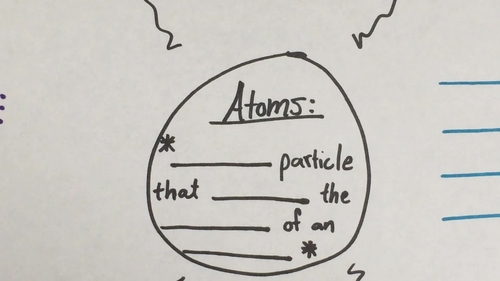 Atoms:
*
particle
that the
of an
*